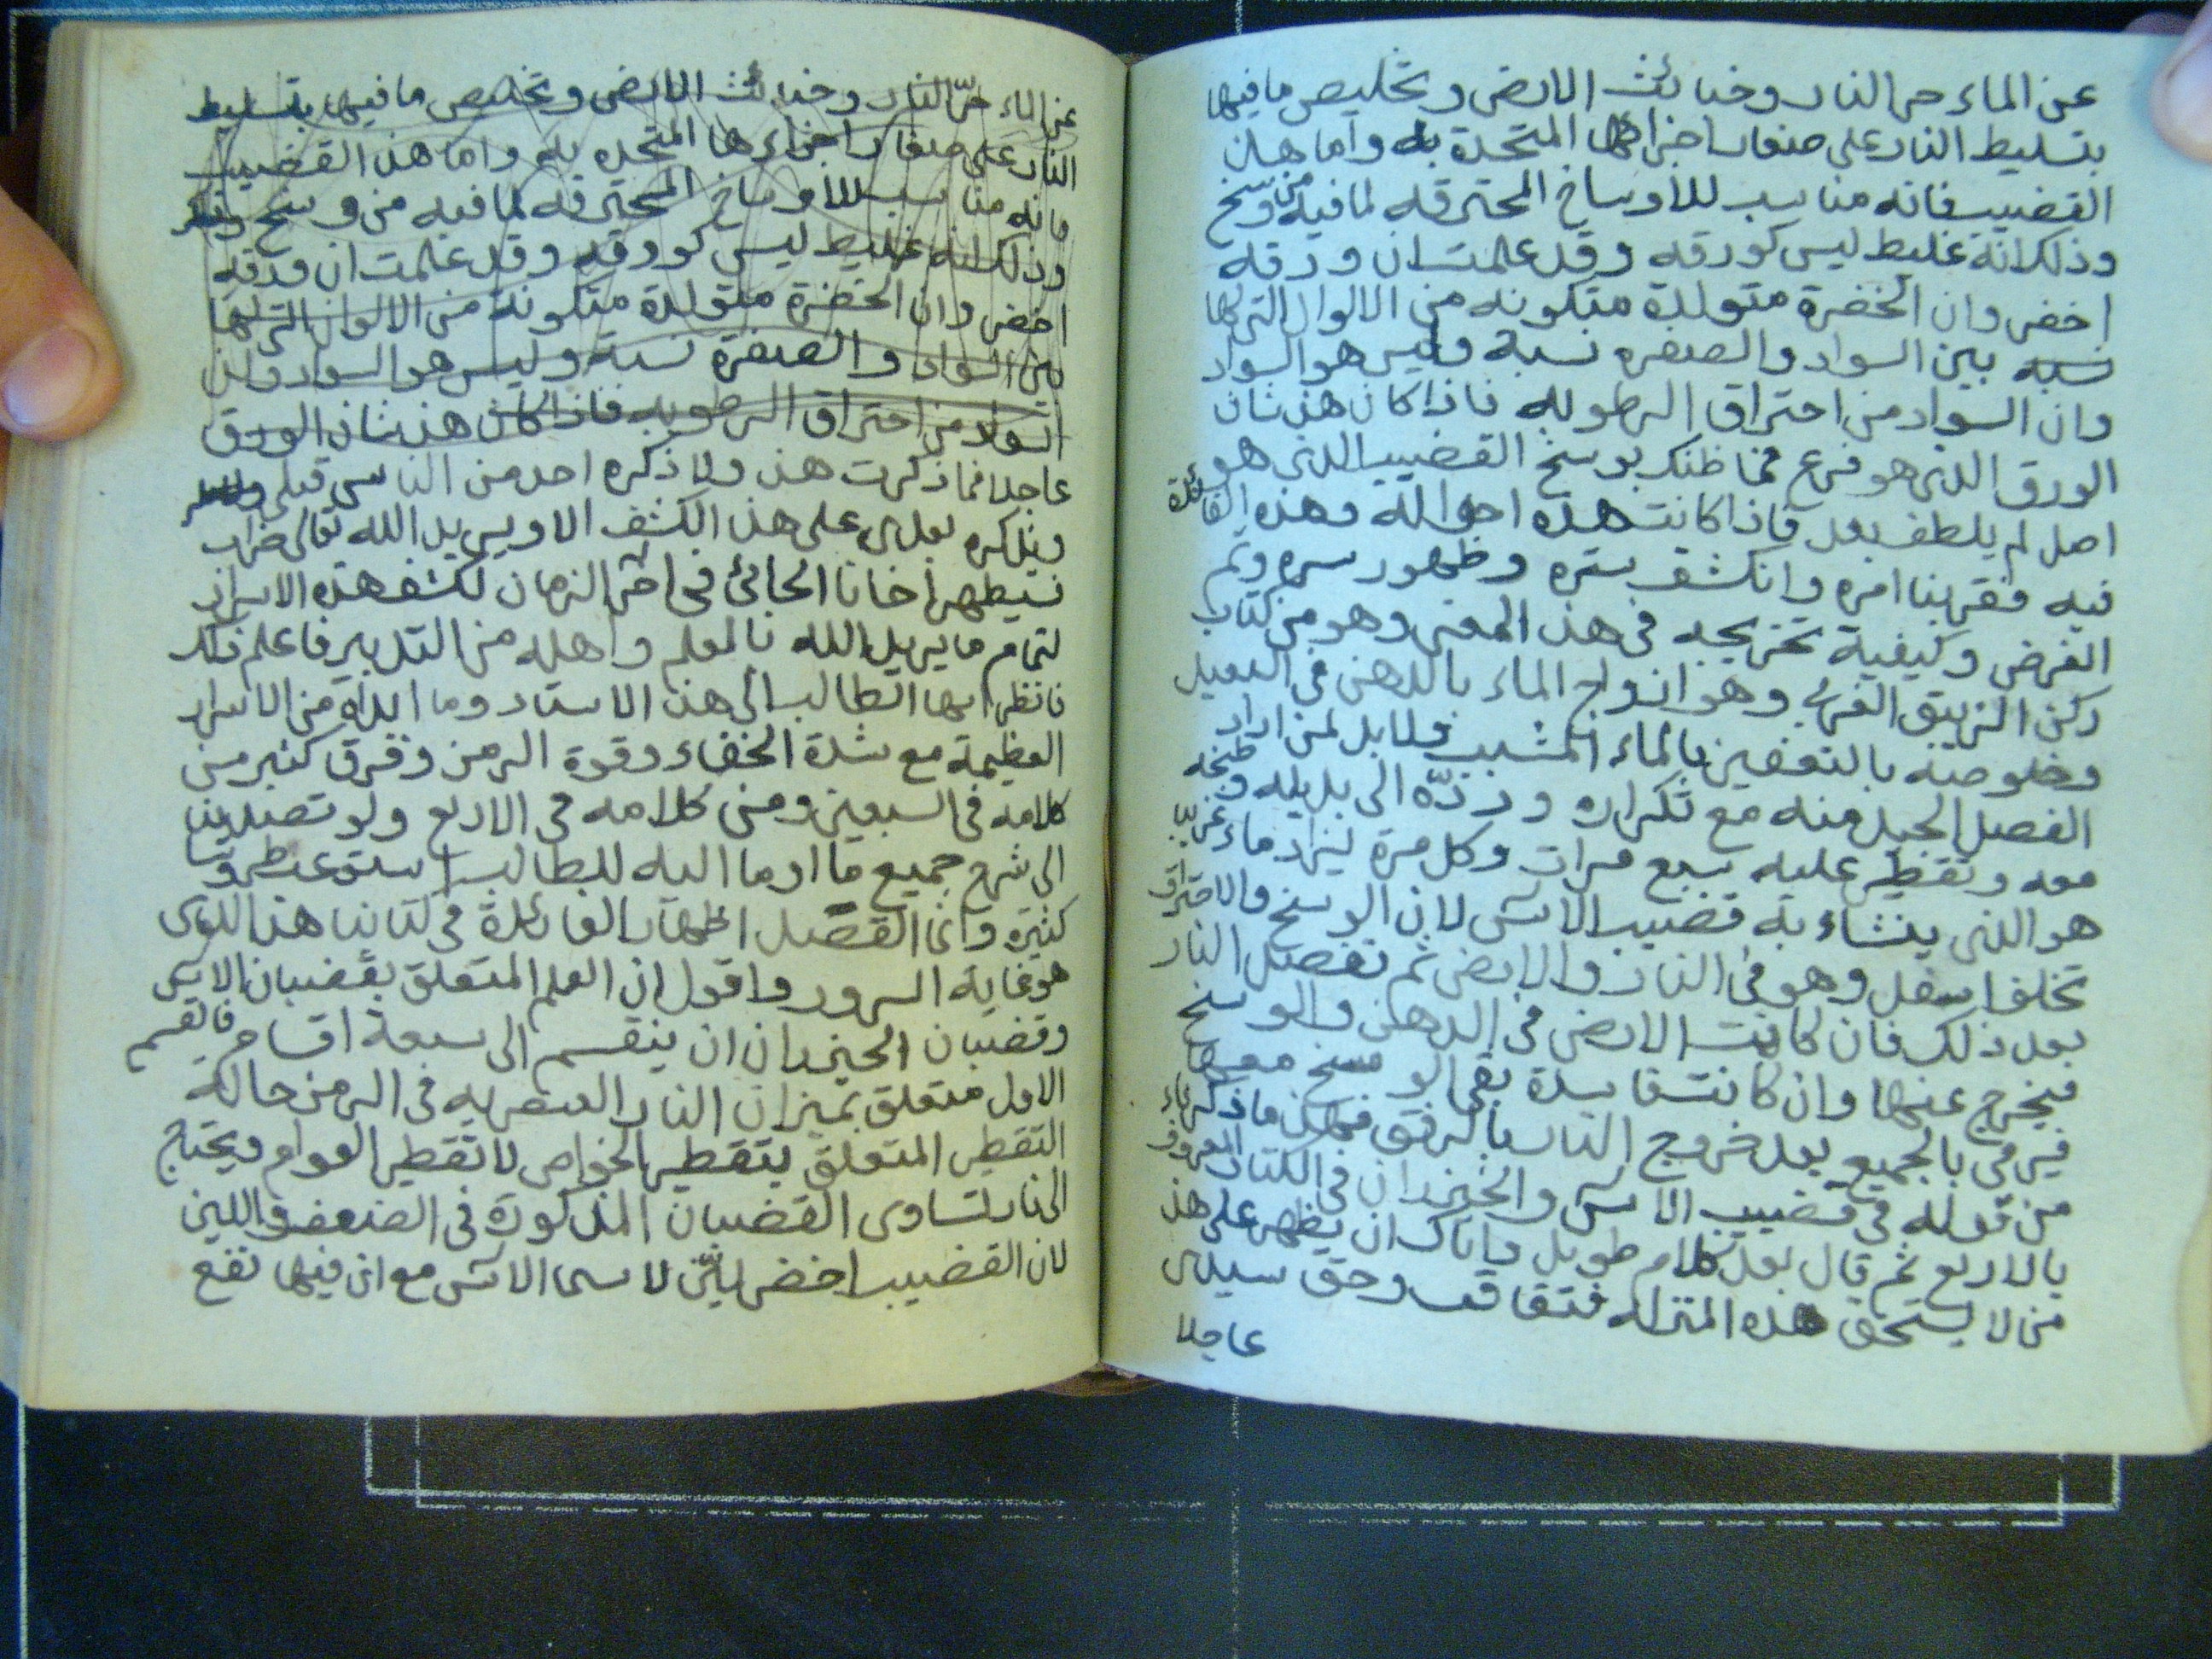 عن الماء حر النار وخبائث الارض وتخليص ما فيها
بتسليط النار على صغار اجزائها المتحدة به واما هذا
القضيب فانه مناسب للاوساخ المحترقه لما فيه من وسخ
وذلك انه غليظ ليس كورقه وقد علمت ان ورقه
اخضر وان الخضرة متولدة متكونه من الالوان التى لها
نسبه بين السواد والصفره نسبة وليس هو السواد
وان السواد من احتراق الرطوبه فاذا كان هذا شان
الورق الذى هو فرع فما ظنك بوسخ القضيب الذى هو
اصل لم يلطف بعد فاذا كانت هذه احواله وهذه الفائدة
فيه فقربنا امره وانكشف ستره وظهور سره وتم
الغرض وكيفية تخريجه فى هذا المعنى وهو من كتاب
ركن الزيبق الغربى وهو ازواج الماء بالدهن فى
وخلوصته بالتعفين بالماء المشبب فلا بد لمن اراد
الفصل الجيد منه مع تكراره وردّه الى بدايله وطبخه
معه وتقطر عليه سبع مرات وكل مرة يزاد ماء غريب
هو الذى ينشاء به قضيب الاس لان الوسخ والاحتراق
تخلف اسفل وهو فى النار والارض ثم تفصل النار
بعد ذلك فان كانت الارض فى الدهن والوسخ
فيخرج عنها وان كانت فاسدة بقى الوسخ معها
فيرمى بالجميع بعد خروج النار بالرفق فهذا ما ذكرناه
من قوله فى قضيب الاس والخيزران فى الكتاب المعروف
بالاربع ثم قال بعد كلام طويل واياك ان يظهر على هذا
من لا يستحق هذه المنزله فتعاقب وحق سيدى
عاجلا
عن الماء حرّ النار وخبائث الارض وتخليص ما فيها بتسليط
النار على صغار اجزاءها المتحده به واما هذا القضيب
فانه مناسب للاوساخ المحترقه لما فيه من وسخ
وذلك انه غليظ ليس كورقه وقد علمت ان ورقه
اخضر وان الخضرة متولدة متكونة من الالوان التى لها
بين السواد والصفرة نسبة وليس هو السواد وان
السواد من احتراق الرطوبه فاذا كان هذا شان الورق
عاجلا فما ذكرت هذا ولا ذكره احد من الناس قبلى
ويذكره بعدى على هذا الكشف الا ويريد الله تعالى خراب
نسيظهر اخانا الجائى فى اخر الزمان لكشف هذه الاسرار
لتمام ما يريد الله بالمعلم واهله من التدبير فاعلم ذلك
فانظر ايها الطالب الى هذا الاستاد وما ابداه من الاسرار
العظيمة مع شدة الخفاء وقوة الرمز وفرق كثير من
كلامه فى السبعين ومن كلامه فى الاربع ولو تصدينا
الى شرح جميع ما اوما اليه للطالب استوعبنا
كثيره وانما القصد اظهار الفائدة فى كتابنا هذا الذى
هو غاية السرور واقول ان العلم المتعلق بقضبان الاس
وقضبان الخيزران ان ينقسم الى سبعة اقسام فالقسم
الاول متعلق بميزان النار العنصريه فى الرمز حالة
التقطير المتعلق بتقطير الخواص لا تقطير العوام ويحتاج
الى نار لتساوى القضبان المذكورة فى الضعف واللين
لان القضيب اخضر ليّن لا سما الاس مع ان فيها نفع